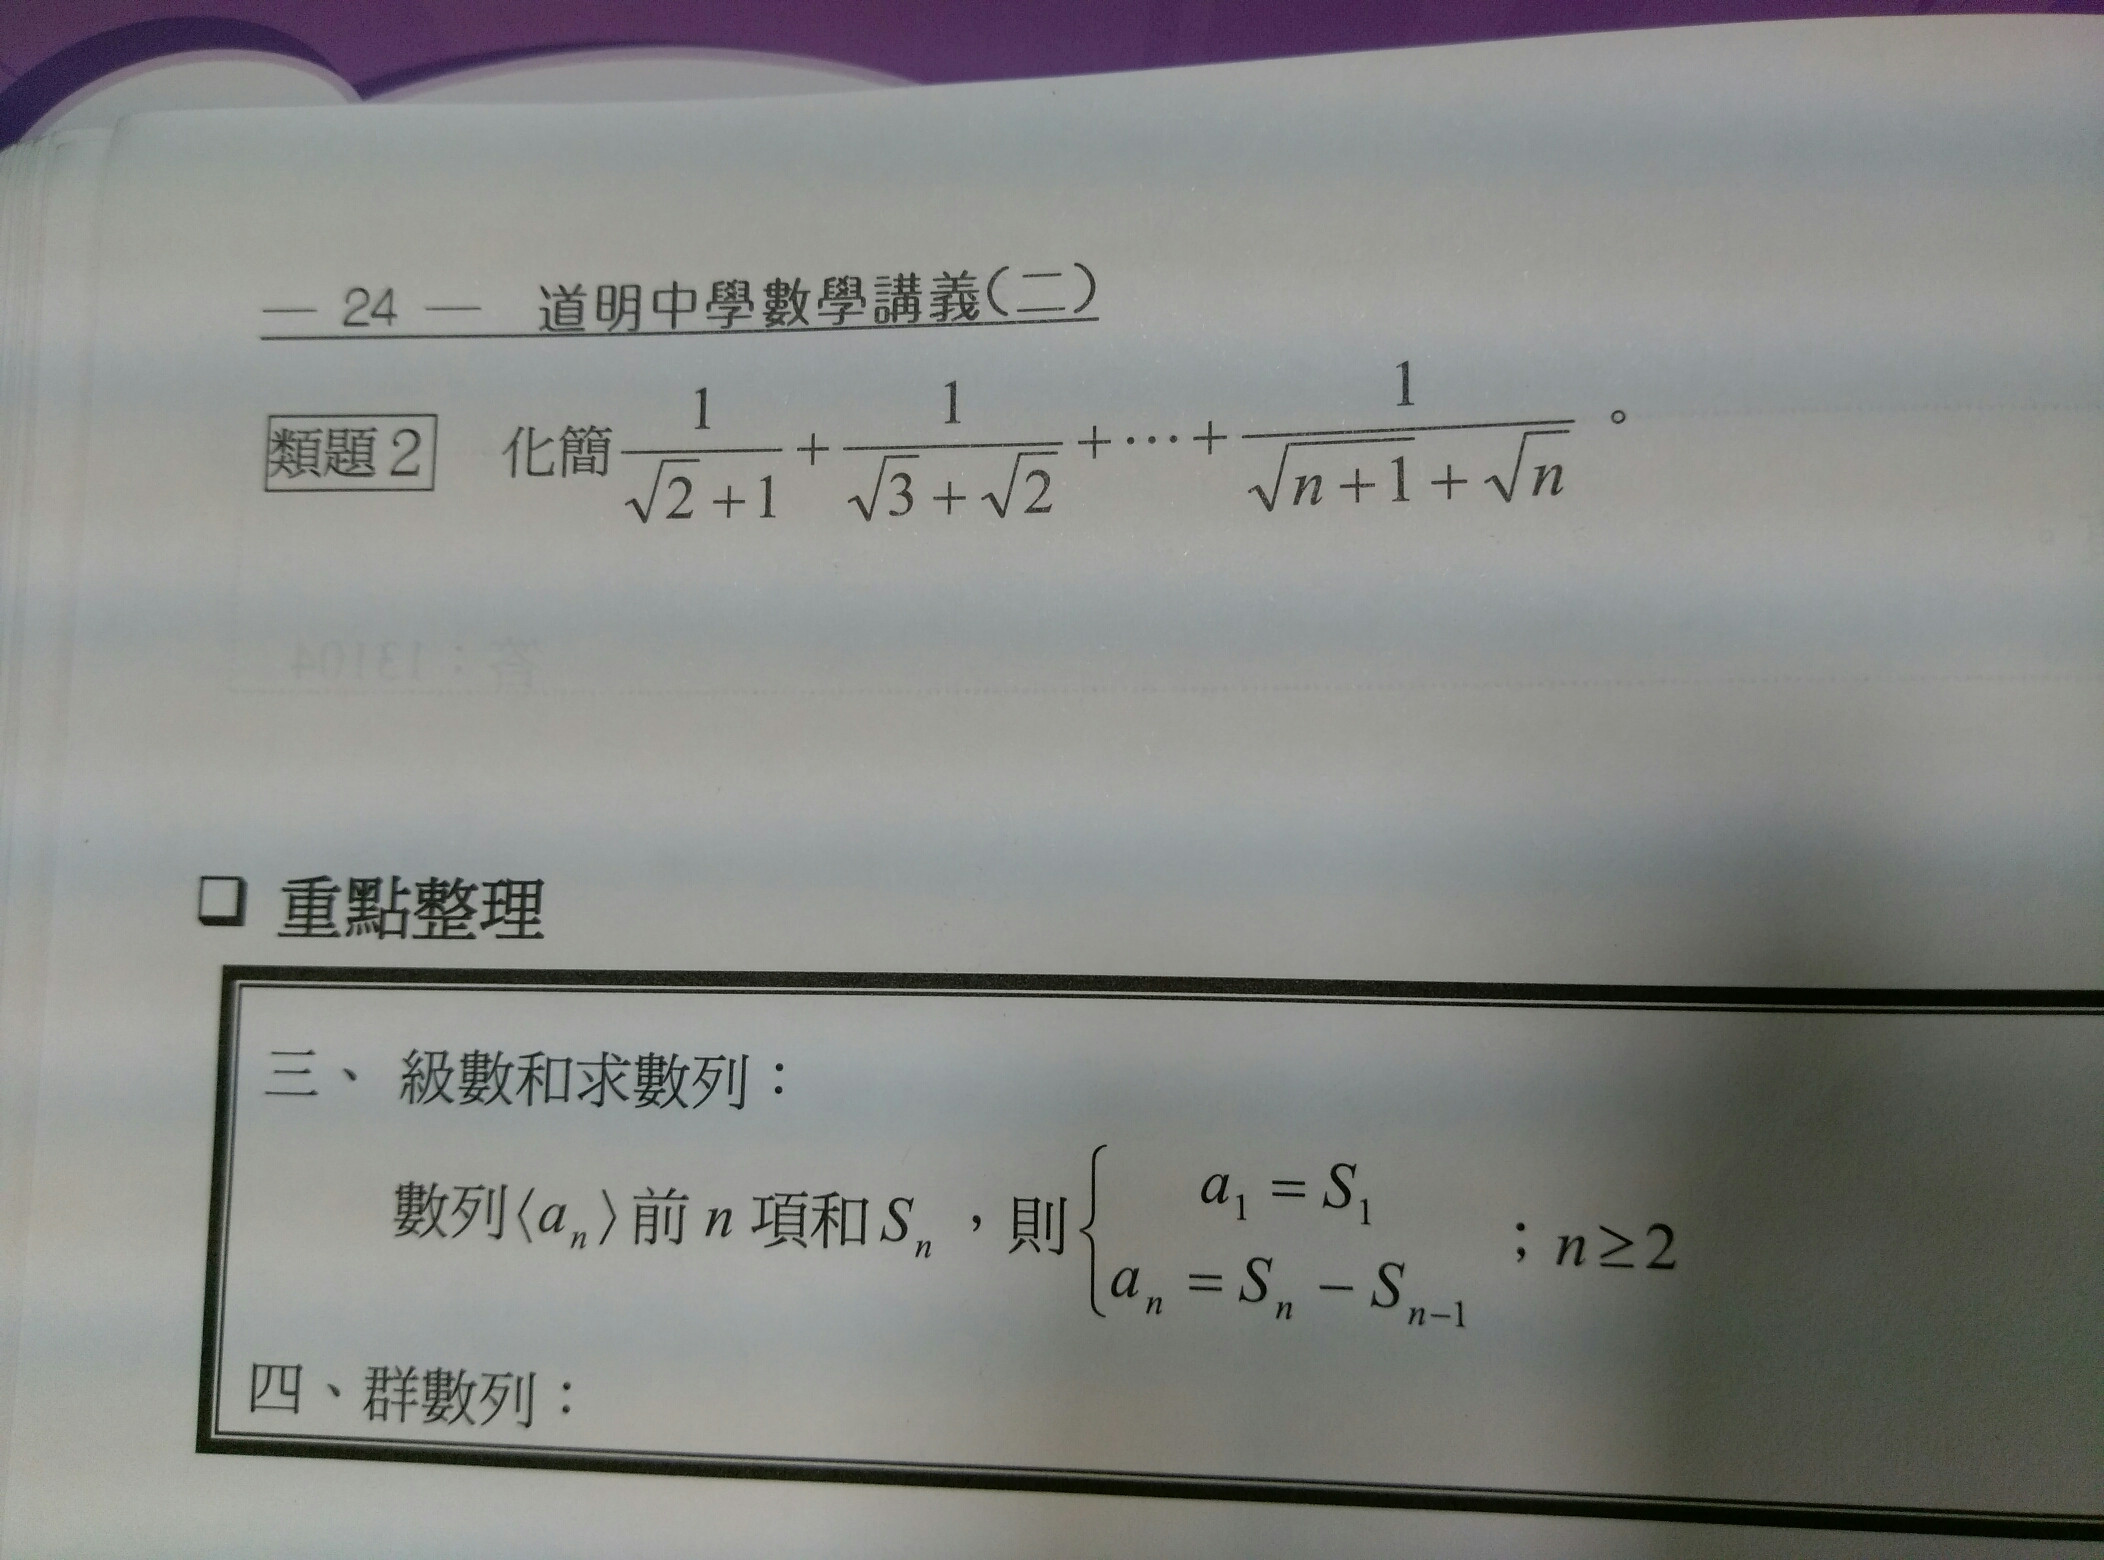 — 24 — 道明中學數學講義(二)
類題2 化簡 1/(√2+1) + 1/(√3+√2) + ⋯ + 1/(√(n+1)+√n) 。
答：13104
❑ 重點整理
三、 級數和求數列：
數列⟨aₙ⟩前 n 項和 Sₙ ，則 { a₁ = S₁
aₙ = Sₙ − Sₙ₋₁ ；n ≥ 2
四、群數列：